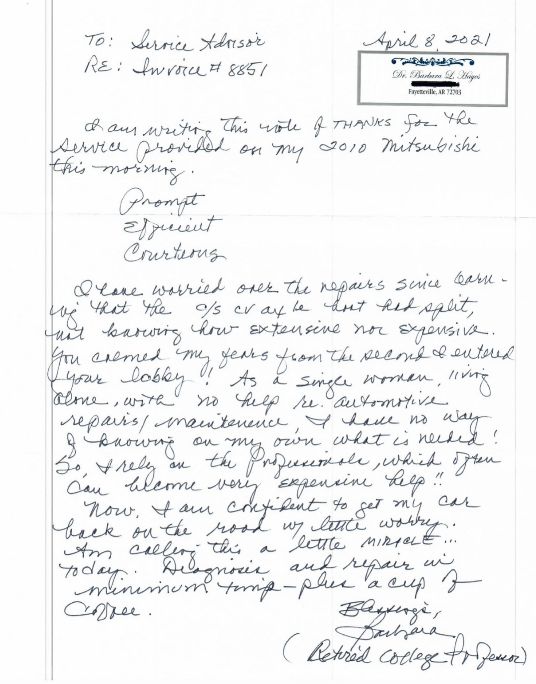 To: Service Advisor
April 8, 2021
RE: Invoice # 8851
Dr. Barbara L. Hayes
Fayetteville, AR 72703
I am writing this note of THANKS for the
service provided on my 2010 Mitsubishi
this morning.
Prompt
Efficient
Courteous
I have worried over the repairs since learn-
ing that the o/s cv axle boot had split,
not knowing how extensive nor expensive.
You calmed my fears from the second I entered
your lobby! As a single woman, living
alone, with no help re: automotive
repairs/maintenence, I have no way
of knowing on my own what is needed!
So, I rely on the Professionals, which often
can become very expensive help!!
Now, I am confident to get my car
back on the road w/ little worry.
Am calling this a little MIRACLE...
today. Diagnosis and repair in
minimum time - plus a cup of
Coffee.
Blessings,
Barbara
(Retired College Professor)